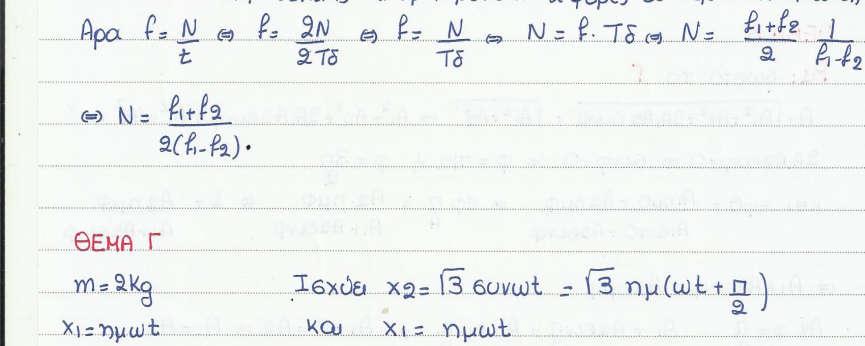 Άρα f = N/t ⇔ f = 2N/2Tδ ⇔ f = N/Tδ ⇔ N = f · Tδ ⇔ N = (f1+f2)/2 1/(f1-f2)
⇔ N = (f1+f2)/2(f1-f2).
ΘΕΜΑ Γ
m = 2kg Ισχύει x2 = √3 συνωt = √3 ημ(ωt + π/2)
x1 = ημωt και x1 = ημωt